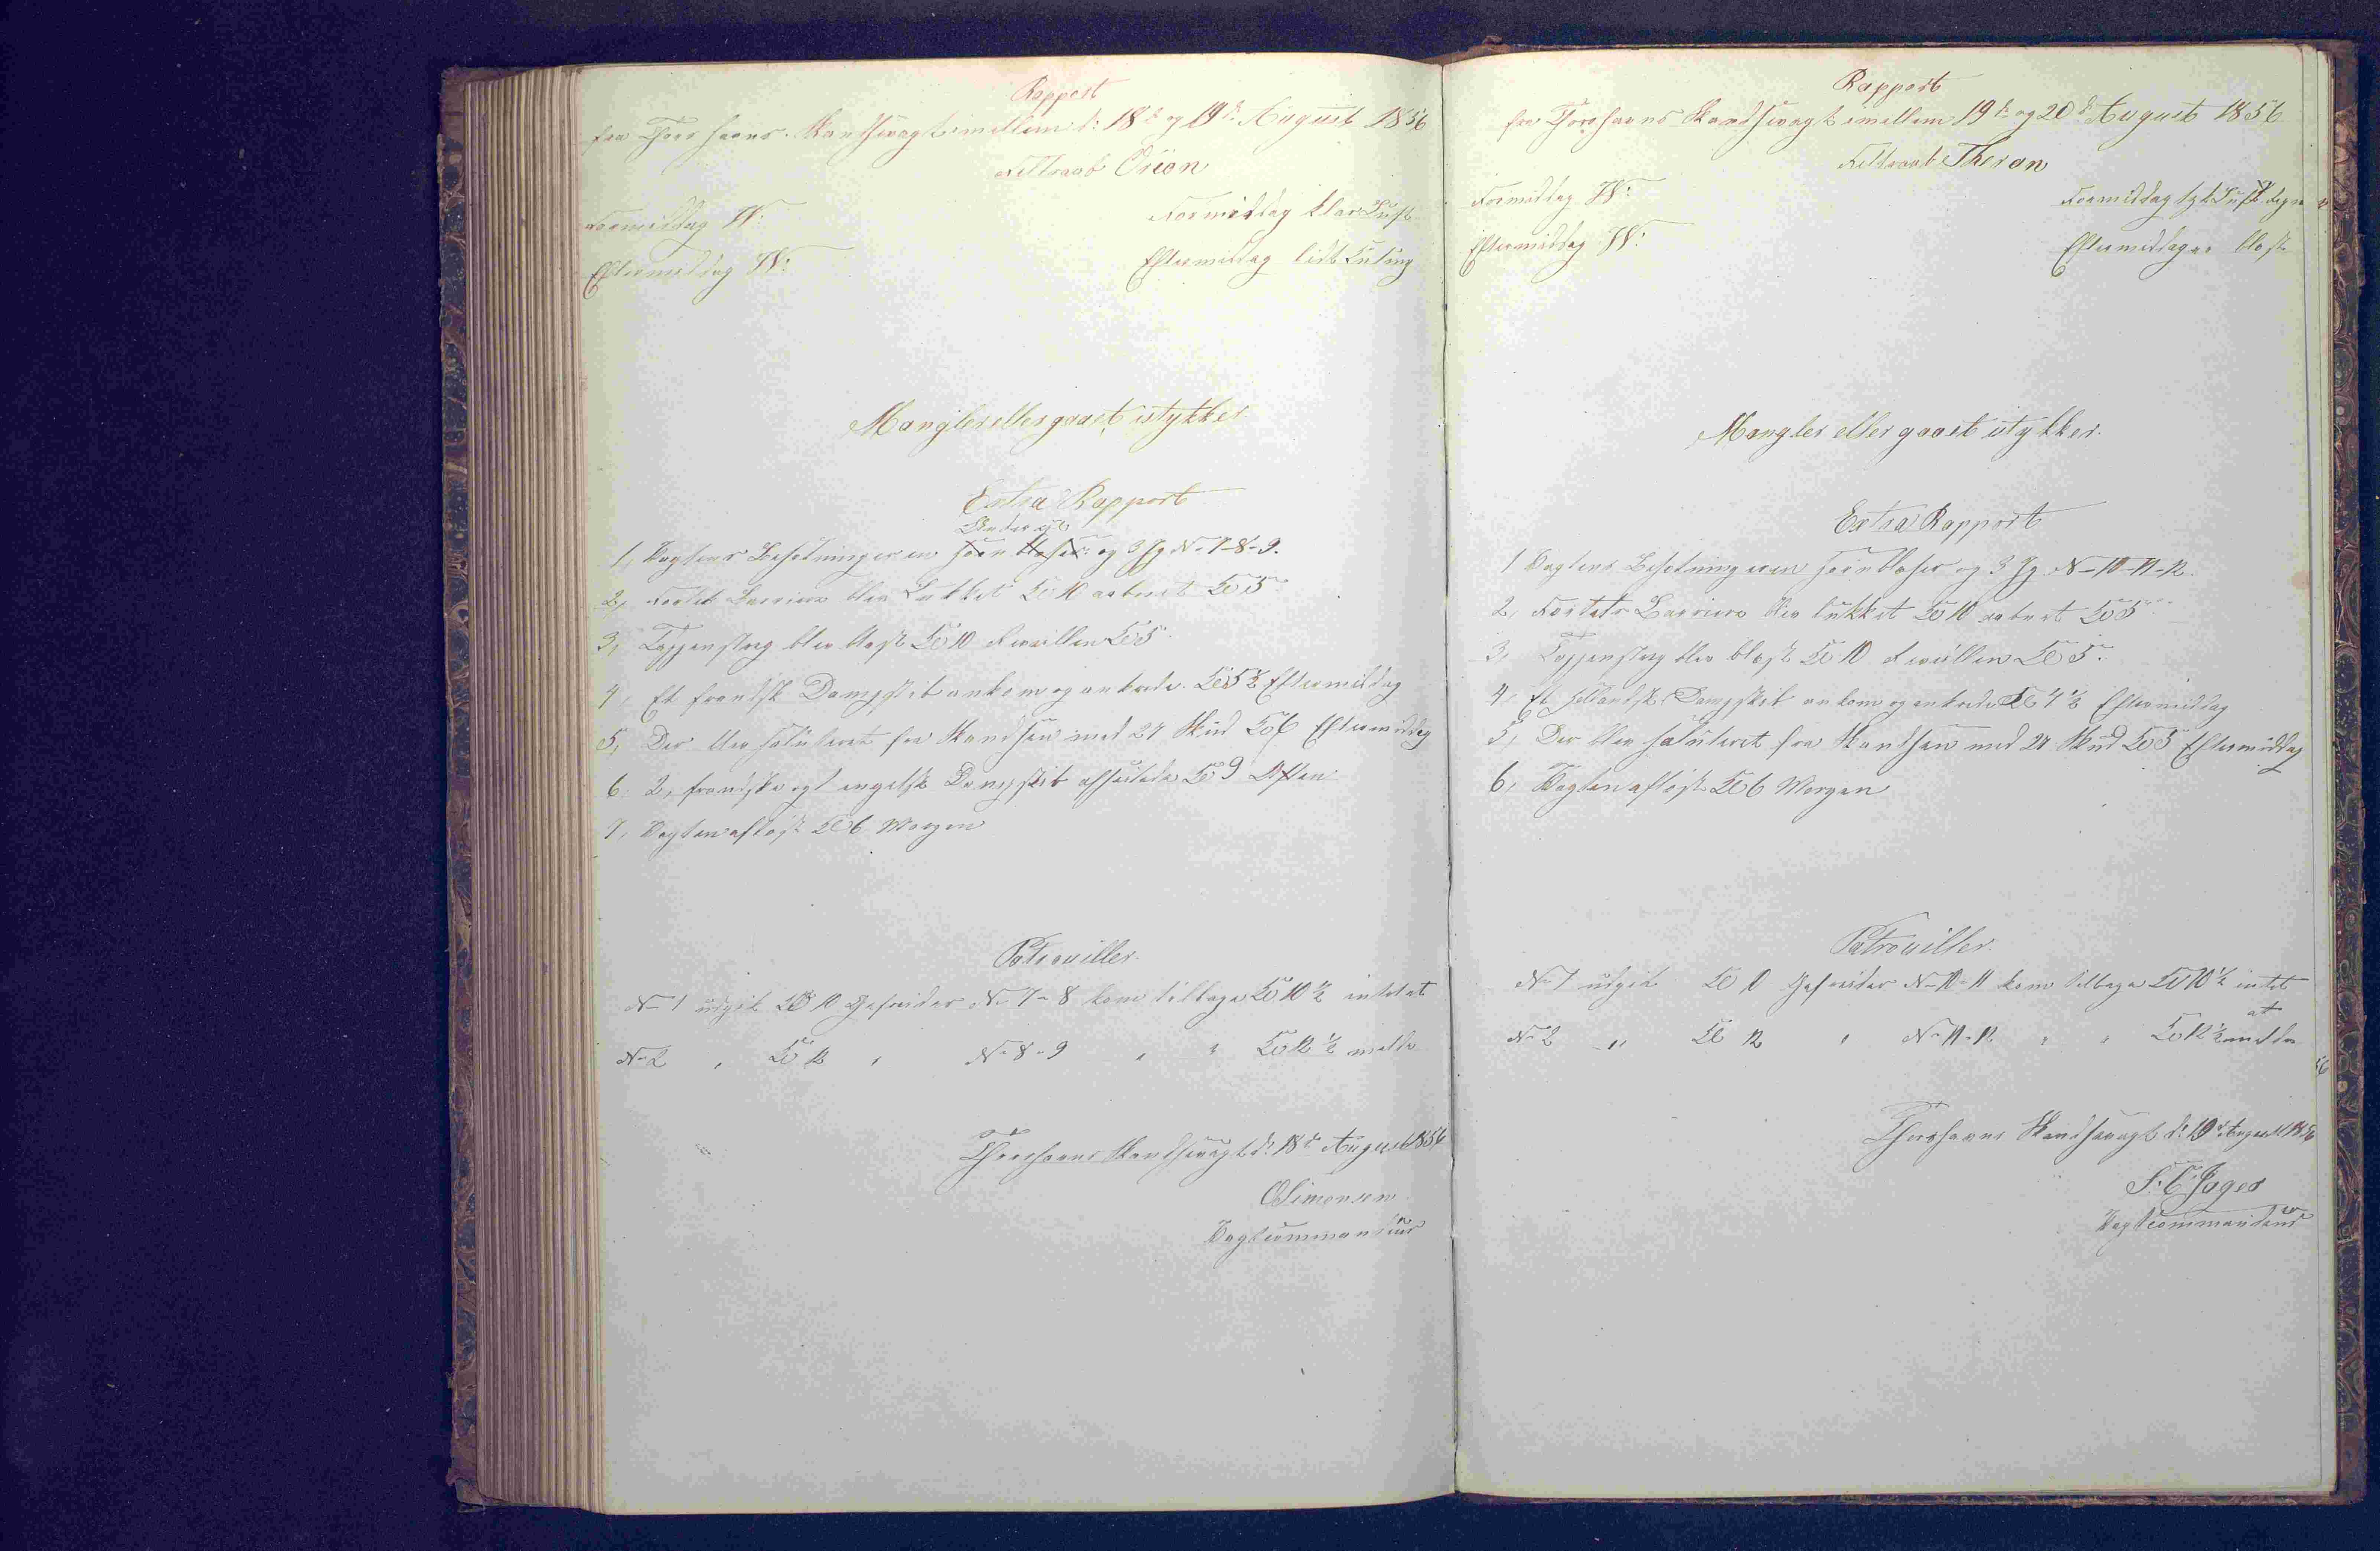 Rapport
fra Thorshavns Skandsevagt imellem d: 18de og 19de August 1856
Feltraab Orion
Formiddag W:
Formiddag klar Luft
Eftermiddag W:
Eftermiddag lidt Kuling
Mangler eller gaaet istykker.
Extra Rapport
1, Vagtens Besætning er en Hornblæser og 3 Jg N- 7-8-9.
2, Fortets Barriere blev Lukket Kl 10 aabnet Kl 5
3, Tappenstreg blev blæst Kl 10 Revellien Kl 5
4, Et fransk Dampskib ankom og ankrede Kl 5½ Eftermiddag
5, Der blev saluteret fra Skandsen med 21 Skud Kl 6 Eftermiddag
6. 2, franske og 1 engelsk Dampskib afseilede Kl 9 Aften
7, Vagten afløst Kl 6 Morgen
Patrouiller.
N- 1 udgik Kl 10 Gefreider N- 7-8 kom tilbage Kl 10½ intet at
N- 2 " Kl 12 " N- 8-9 " " Kl 12½ melde
Thorshavns Skandsevagt d: 18de August 1856
Simonsen
Vagtcommandeur
Rapport
fra Thorshavns Skandsevagt imellem 19de og 20de August 1856
Feltraab Theron
Formiddag W:
Formiddag tyk Luft
Eftermiddag W:
Eftermiddag blæst
Mangler eller gaaet istykker.
Extra Rapport
1 Vagtens Besætning er en Hornblæser og 3 Jg N- 10-11-12.
2, Fortets Barriere blev lukket Kl 10 aabnet Kl 5
3, Tappenstreg blev blæst Kl 10 Revellien Kl 5.
4, Et hollandsk Dampskib ankom og ankrede Kl 4½ Eftermiddag
5, Der blev saluteret fra Skandsen med 21 Skud Kl 5 Eftermiddag
6, Vagten afløst Kl 6 Morgen
Patrouiller.
N- 1 udgik Kl 10 Gefreider N- 10-11 kom tilbage Kl 10½ intet
at
N- 2 " Kl 12 " N- 11-12 " " Kl 12½ melde
Thorshavns Skandsevagt d: 19de August 1856
Jager
Vagtcommandeur